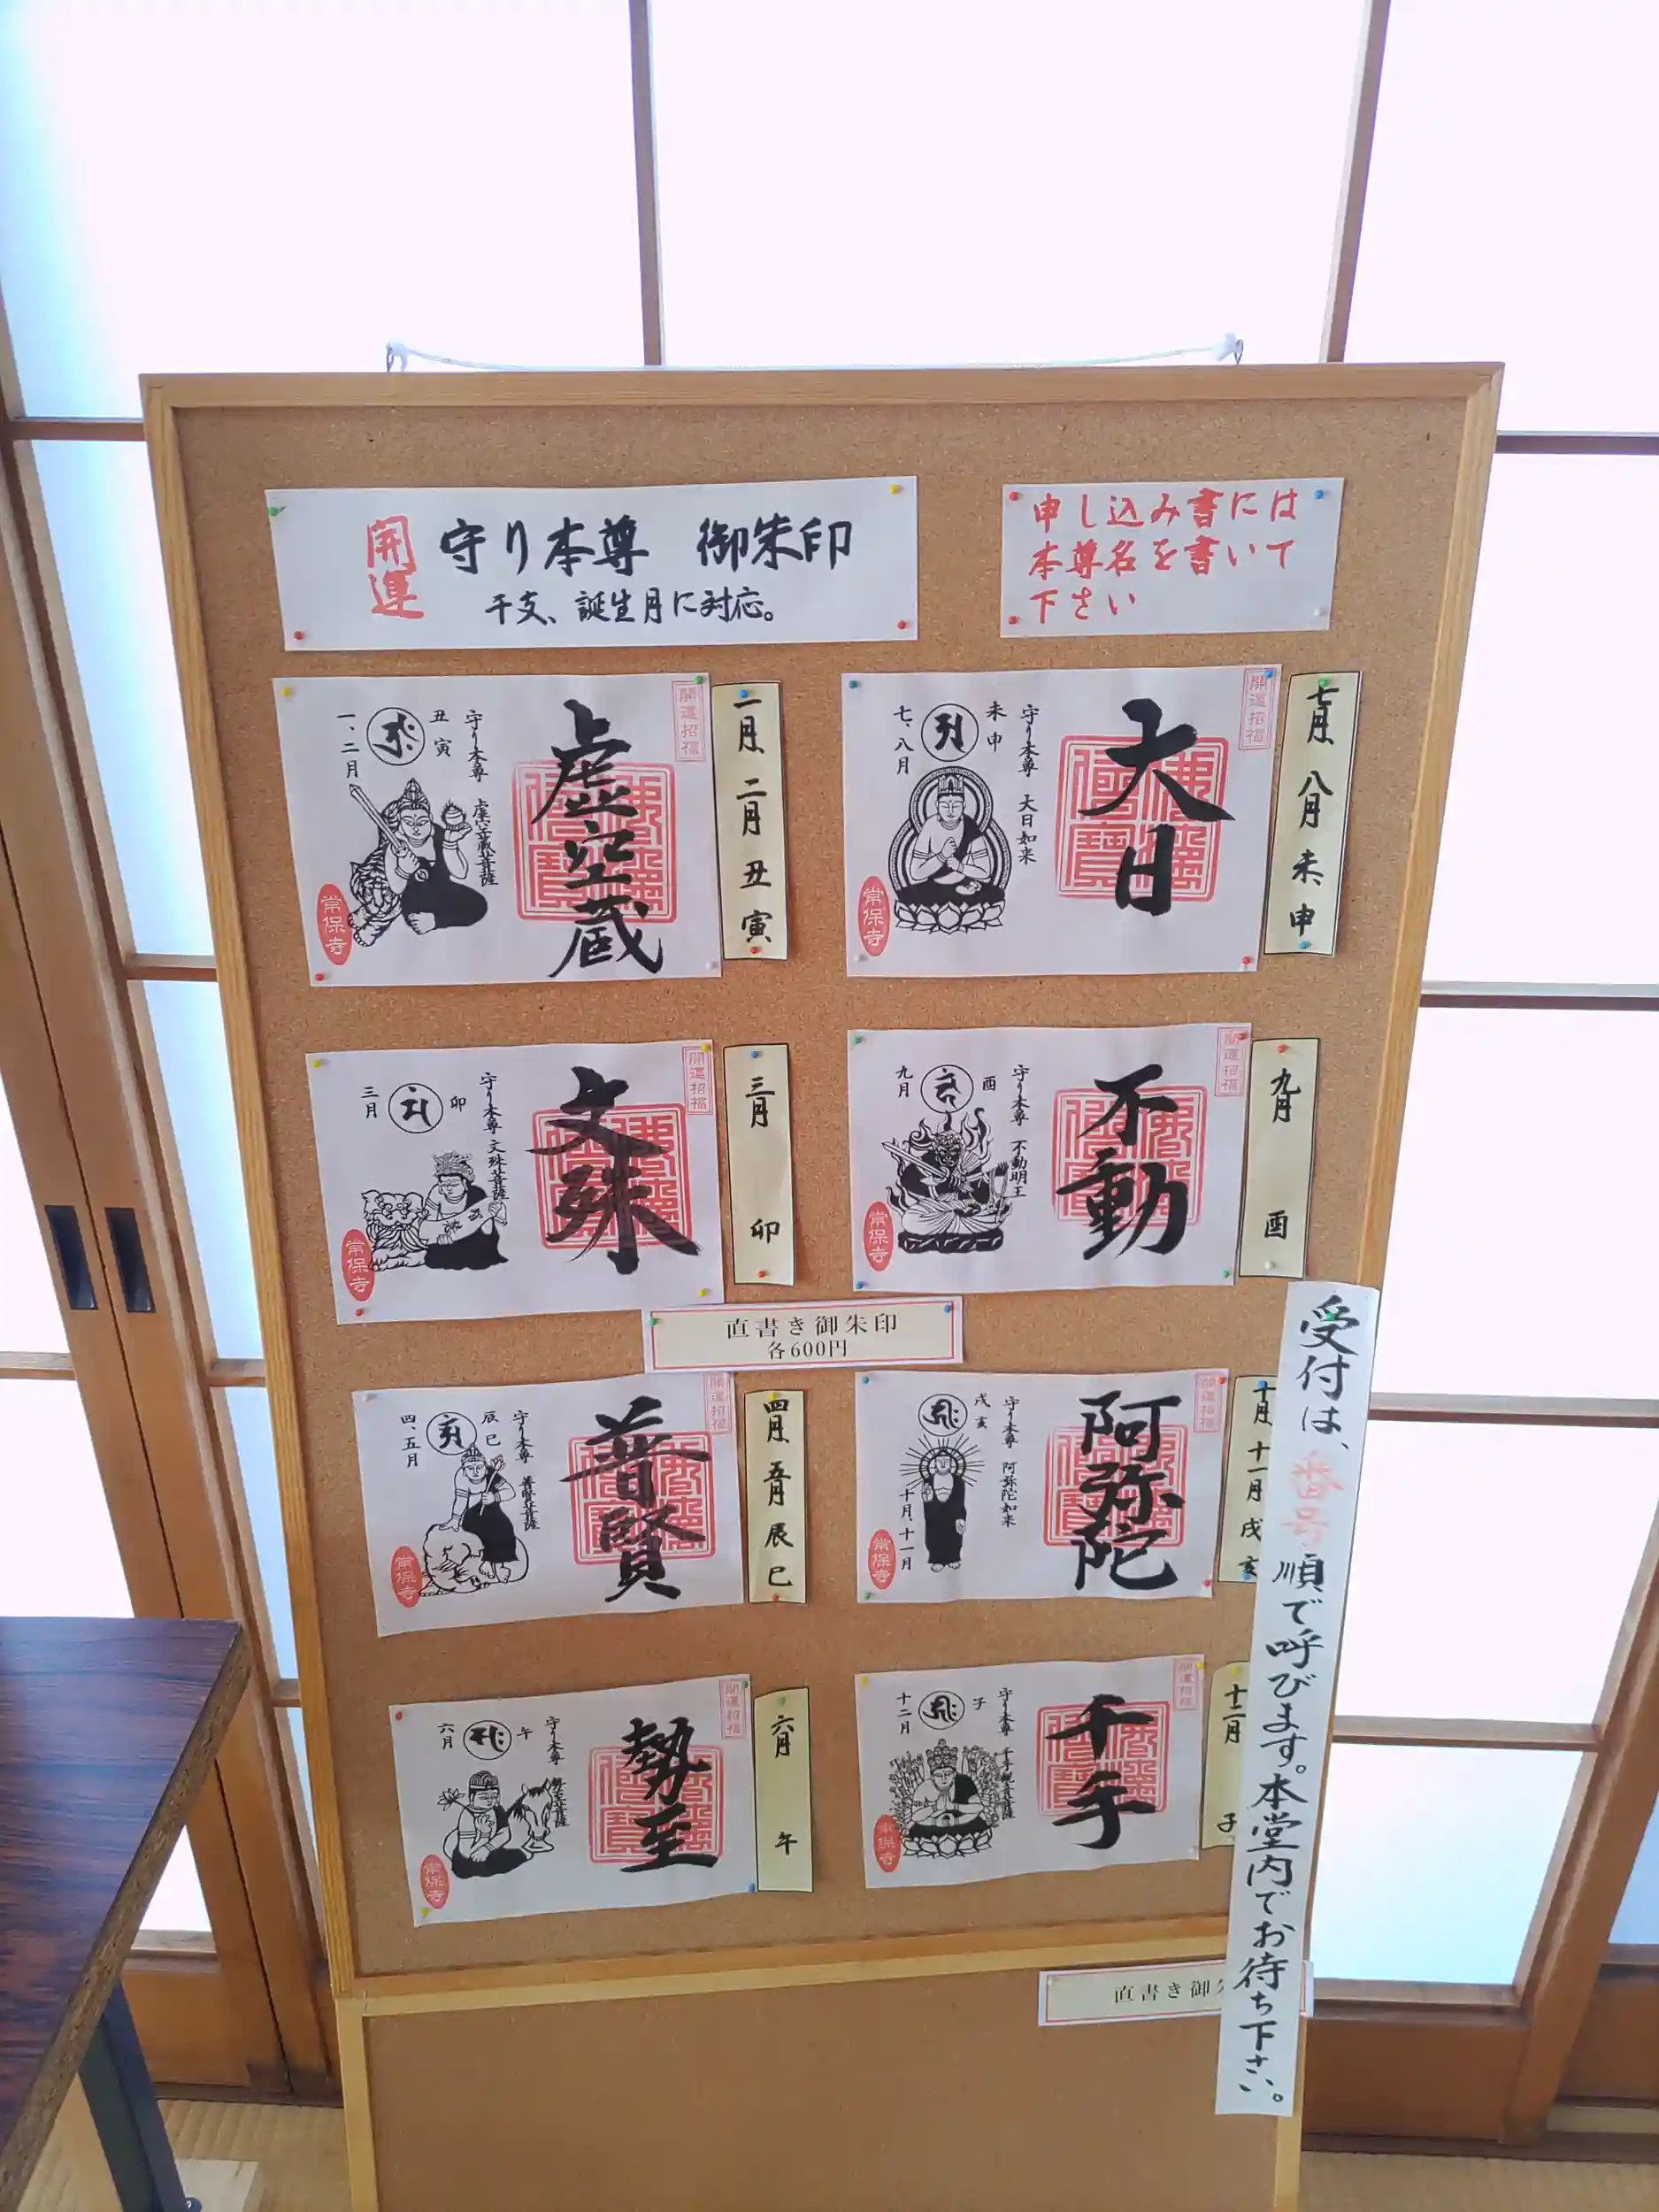 開運
守り本尊 御朱印
干支、誕生月に対応。
申し込み書には
本尊名を書いて
下さい
開運招福
虚空蔵
守り本尊 虚空蔵菩薩
丑寅
一、二月
常保寺
一月、二月 丑 寅
開運招福
大日
守り本尊 大日如来
未申
七、八月
常保寺
七月、八月 未、申
開運招福
文殊
守り本尊 文殊菩薩
卯
三月
常保寺
三月 卯
開運招福
不動
守り本尊 不動明王
酉
九月
常保寺
九月 酉
直書き御朱印
各600円
開運招福
普賢
守り本尊 普賢菩薩
辰巳
四、五月
常保寺
四月、五月 辰 巳
開運招福
阿弥陀
守り本尊 阿弥陀如来
戌亥
十月、十一月
常保寺
十月、十一月 戌 亥
開運招福
勢至
守り本尊 勢至菩薩
午
六月
常保寺
六月 午
開運招福
千手
守り本尊 千手観音菩薩
子
十二月
常保寺
十二月 子
受付は、番号順で呼びます。本堂内でお待ち下さい。
直書き御